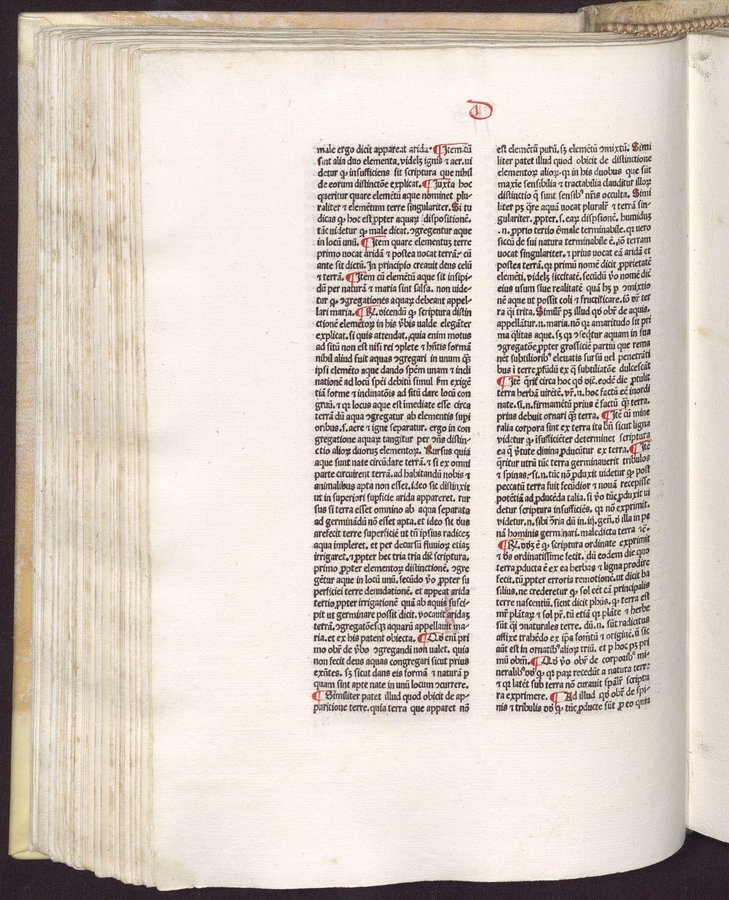 D
male ergo dicit appareat arida. ¶ Item cū
sint alia duo elementa, videlꝫ ignis ⁊ aer. ui
detur ꝙ insufficiens sit scriptura que nihil
de eorum distinctōe explicat. ¶ Juxta hoc
queritur quare elemētū aque nominet plu
raliter ⁊ elemētum terre singulariter. Si tu
dicas ꝙ hoc est ꝓpter aquaꝝ dispositionē.
tūc uidetur ꝙ male dicat. ꝯgregentur aque
in locū unū. ¶ Item quare elementuꝫ terre
primo vocat aridā ⁊ postea vocat terrā. cū
ante sit dictū. In principio creauit deus celū
⁊ terrā. ¶ Itēm cū elemētū aque sit insipi
dū per naturā ⁊ maria sint salsa. non uide
tur ꝙ ꝯgregationes aquaꝝ debeant appel
lari maria. ¶ R̄. dicendū ꝙ scriptura distin
ctionē elemētoꝝ in his v̄bis ualde elegāter
explicat, si quis attendat. quia enim motus
ad sitū non est nisi rei ꝯplete ⁊ hn̄tis formā
nihil aliud fuit aquas ꝯgregari in unum ꝙ̄
ipsi elemēto aque dando spēm unam ⁊ incli
nationē ad locū spēi debitū simul ẜm exigē
tiā forme ⁊ inclinatōis ad sitū dare locū con
gruū. ⁊ qꝛ locus aque est imediate esse circa
terrā dū aqua segregatur ab elemētis supi
oribus. s. aere ⁊ igne separatur. ergo in con
gregatione aquaꝝ tangitur per ꝯn̄s distin
ctio alioꝝ duoruꝫ elementoꝝ. Rursus quia
aque sunt nate circūdare terrā. ⁊ si ex omni
parte circuirent terrā. ad habitandū nobis ⁊
animalibus apta non esset. ideo sic distinxit
ut in superiori supficie arida appareret. rur
sus si terra esset omnino ab aqua separata
ad germinādū nō esset apta. et ideo sit deus
arefecit terre superficiē ut tn̄ ipsius radices
aqua impleret. et per decursū fluuioꝝ etiaꝫ
irrigaret. ⁊ ꝓpter hec tria tria dic̄ scriptura.
primo ꝓpter elementoꝝ distinctionē. ꝯgre
gētur aque in locū unū. secūdo ꝟo ꝓpter su
perficiei terre denudationē. et appeat arida
tertio ꝓpter irrigationē quā ab aquis susci
pit ut germinare possit dicit. vocauit aridaꝫ
terrā. ꝯgregatōesqꝫ aquarū appellauit ma
ria. et ex his patent obiecta. ¶ Qd̓ eni pri
mo obn̄t de v̓bo ꝯgregandi non ualet. quia
non fecit deus aquas congregari sicut prius
exn̄tes. sꝫ sicut dans eis formā ⁊ naturā p
quam sint apte nate in unū locum ꝯcurrere.
¶ Similiter patet illud quod obicit de ap
paritione terre. quia terra que apparet nō
est elemētū purū. sꝫ elemētū ꝯmixtū. Simi
liter patet illud quod obicit de distinctione
elementoꝝ alioꝝ. qꝛ in his duobus que sūt
maxīe sensibilia ⁊ tractabilia clauditur illoꝝ
distinctio q̄ sunt sensibꝰ nr̄is occulta. Simi
liter pꝫ q̄re aquā vocat pluralr̄ ⁊ terrā sin
gulariter. ꝓpter. s. eaꝝ dispsionē. humiduꝫ
.n. ꝓprio tertio ē male terminabile. qꝛ uero
siccū de sui natura terminabile ē. iō terram
uocat singulariter. ⁊ prius uocat eā aridā et
postea terrā. qꝛ primū nomē dicit ꝓprietatē
elemēti, videlꝫ siccitatē. secūdū ꝟo nomē dic̄
eius usum siue realitatē quā hꝫ p ꝯmixtio
nē aque ut possit coli ⁊ fructificare. iō dr̄ ter
ra q̄si trita. Simil̓r pꝫ illud qd̓ obn̄t de aquis.
appellātur. n. maria. nō qꝛ amaritudo sit pri
ma q̄litas aque. sꝫ qꝛ ꝯseq̄tur aquam in sua
ꝯgregatōe ꝓpter grossicie partiū que rema
nēt subtilioribꝰ eleuatis sursū uel penetrāti
bus i terre ꝓfūdū ex q̄ subtiliatōe dulcescāt
¶ Itē q̄rit̓ circa hoc qd̓ dic̄. eodē die ꝓtulit
terra herbā uirētē. vr̄. n. hoc factū eē inordi
nate. si. n. firmamētū prius ē factū ꝙ̄ terra.
prius debuit ornari ꝙ̄ terra. ¶ Itē cū mine
ralia corpora sint ex terra ita bn̄ sicut ligna
videtur ꝙ isufficiēter determinet scriptura
ea q̄ v̓tute diuina ꝓducūtur ex terra. ¶ Itē
q̄ritur utrū tūc terra germinauerit tribulos
⁊ spinas. si. n. tūc nō ꝓduxit uidetur ꝙ post
peccatū terra fuit fecūdior ⁊ nouā recepisse
potētiā ad ꝓducēda talia. si ꝟo tūc ꝓduxit ui
detur scriptura insufficiēs. qꝛ nō exprimit.
videtur. n. sibi ꝯria dū in. iij. gen̄. d̓ illa in pe
nā hominis germinari. maledicta terra ⁊c̄.
¶ R̄. dd̓m ē ꝙ scriptura ordinate exprimit
⁊ dꝰ ordinatissime fecit. dū eodem die quo
terra ꝓducta ē ex ea herbas ⁊ ligna prodire
fecit. tū ꝓpter erroris remotionē. ut dicit ba
silius. ne crederetur ꝙ sol eēt cā principalis
terre nascentiū. sicut dicit phūs. ꝙ terra est
mr̄ plātaꝝ ⁊ sol pr̄. tū etiā qꝛ plāte ⁊ herbe
sūt q̄si ꝯnaturales terre. dū. n. sūt radicitus
affixe trahēdo ex ip̄a fomētū ⁊ originē. nō sic
aūt est in ornatibꝰ alioꝝ triū. et p hoc pꝫ pri
mū obm̄. ¶ Qd̓ ꝟo obn̄t de corporibꝰ mi
neralibꝰ dd̓ꝫ ꝙ qꝛ paꝝ recedūt a natura terre
⁊ qꝛ latēt sub terra nō curauit spāl̓r scriptu
ra exprimere. ¶ Ad illud qd̓ obn̄t de spi
nis ⁊ tribulis dd̓ꝫ ꝙ tūc ꝓducte sūt ꝓ eo quia